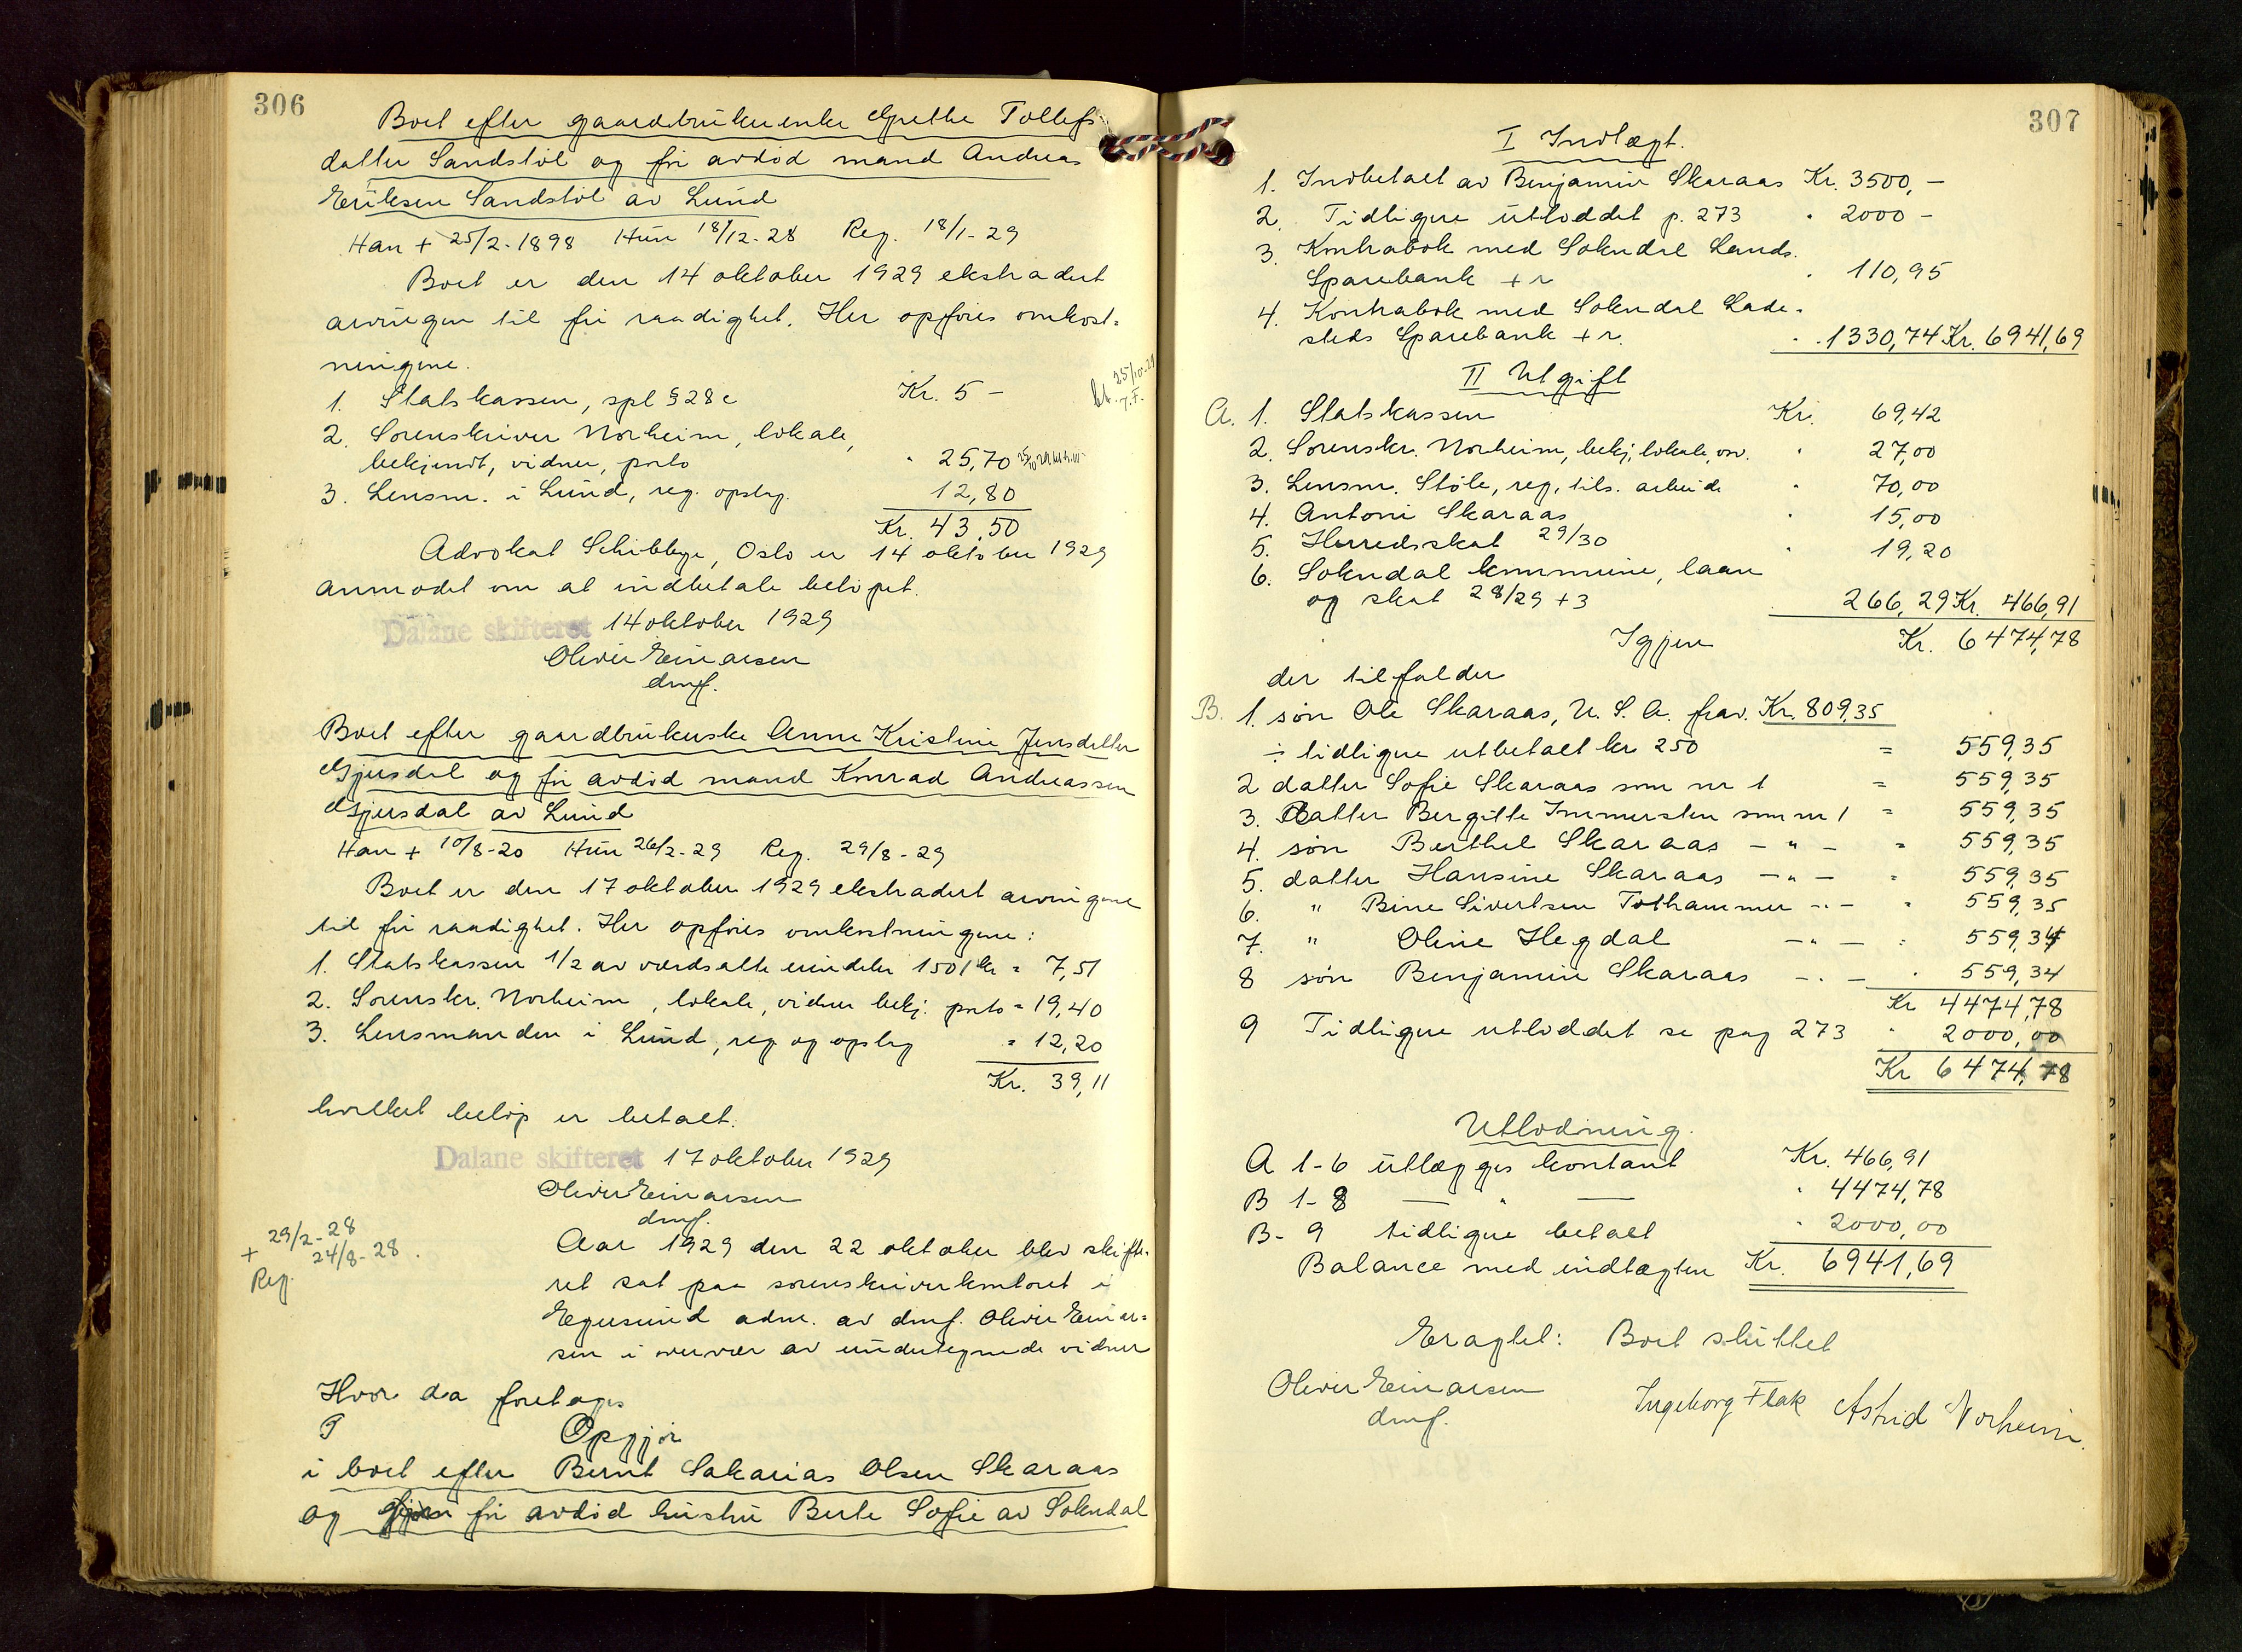 306
Boet efter gaardbrukerenke Grethe Tollefs-
datter Sandstøl og før avdød mand Andreas
Eriksen Sandstøl av Lund
Han + 25/2-1898 Hun 18/12-28 Reg. 18/1-29
Boet er den 14 oktober 1929 ekstradert
arvingen til fri raadighet. Her opføres omkost-
ningene.
1. Statskassen, spl § 28 c Kr. 5 -
bet. 25/10-29
2. Sorenskriver Norheim, lokale,
bekjendt, vidner, porto " 25,70
3. Lensm. i Lund, reg. opslag. 12,80
Kr. 43,50
Advokat Schibbye, Oslo er 14 oktober 1929
anmodet om at indbetale beløpet.
Dalane skifteret 14 oktober 1929
Oliver Einarsen
dmf.
Boet efter gaardbrukerske Anne Kristine Jensdatter
Gjersdal og før avdød mand Konrad Andreassen
Gjersdal av Lund
Han + 10/8-20 Hun 26/2-29 Reg. 29/8-29
Boet er den 17 oktober 1929 ekstradert arvingene
til fri raadighet. Her opføres omkostningene:
1. Statskassen 1/2 av værdsatte eiendeler 1501 kr = 7,51
2. Sorenskr. Norheim, lokale, vidner bekj. porto = 19,40
3. Lensmanden i Lund, reg og opslag = 12,20
Kr. 39,11
hvilket beløp er betalt.
Dalane skifteret 17 oktober 1929
Oliver Einarsen
dmf.
+ 29/2-28
Reg. 24/8-28.
Aar 1929 den 22 oktober blev skifte-
ret sat paa sorenskriverkontoret i
Egersund adm. av dmf. Oliver Einar-
sen i overvær av undertegnede vidner
Hvor da foretages
Opgjør
i boet efter Bernt Sakarias Olsen Skaraas
og før avdød hustru Berte Sofie av Sokndal
307
I Indtægt.
1. Indbetalt av Benjamin Skaraas Kr. 3500,-
2. Tidligere utloddet p. 273 " 2000 -
3. Kontrabok med Sokndal Lands.
Sparebank + r " 110,95
4. Kontrabok med Sokndal Lade-
steds Sparebank + r. " 1330,74 Kr. 6941,69
II Utgift
A. 1. Statskassen Kr. 69,42
2. Sorenskr. Norheim, bekj, lokale, osv. " 27,00
3. Lensm. Støle, reg, tils. arbeide " 70,00
4. Antoni Skaraas " 15,00
5. Herredsskat 29/30 " 19,20
6. Sokndal kommune, laan
og skat 28/29 + 3 266,29 Kr. 466,91
Igjen Kr. 6474,78
der tilfalder
B. 1. søn Ole Skaraas, U. S. A. frav. Kr. 809,35
÷ tidligere utbetalt kr 250 = 559,35
2 datter Sofie Skaraas som nr 1 = 559,35
3. Datter Bergitte Immersten som nr 1 = 559,35
4. søn Berthel Skaraas - " - = 559,35
5. datter Hansine Skaraas - " - = 559,35
6. " Bine Sivertsen Tothammer - " - " 559,35
7. " Oline Hegdal - " - : 559,34
8 søn Benjamin Skaraas - " - " 559,34
Kr 4474,78
9 Tidligere utloddet se pag 273 " 2000,00
Kr 6474,78
Utlodning.
A 1-6 utlægges kontant Kr. 466,91
B 1-8 — " — " 4474,78
B- 9 tidligere betalt " 2000,00
Balance med indtægten Kr. 6941,69
Eragtet: Boet sluttet
Oliver Einarsen
dmf.
Ingeborg Flak Astrid Norheim.